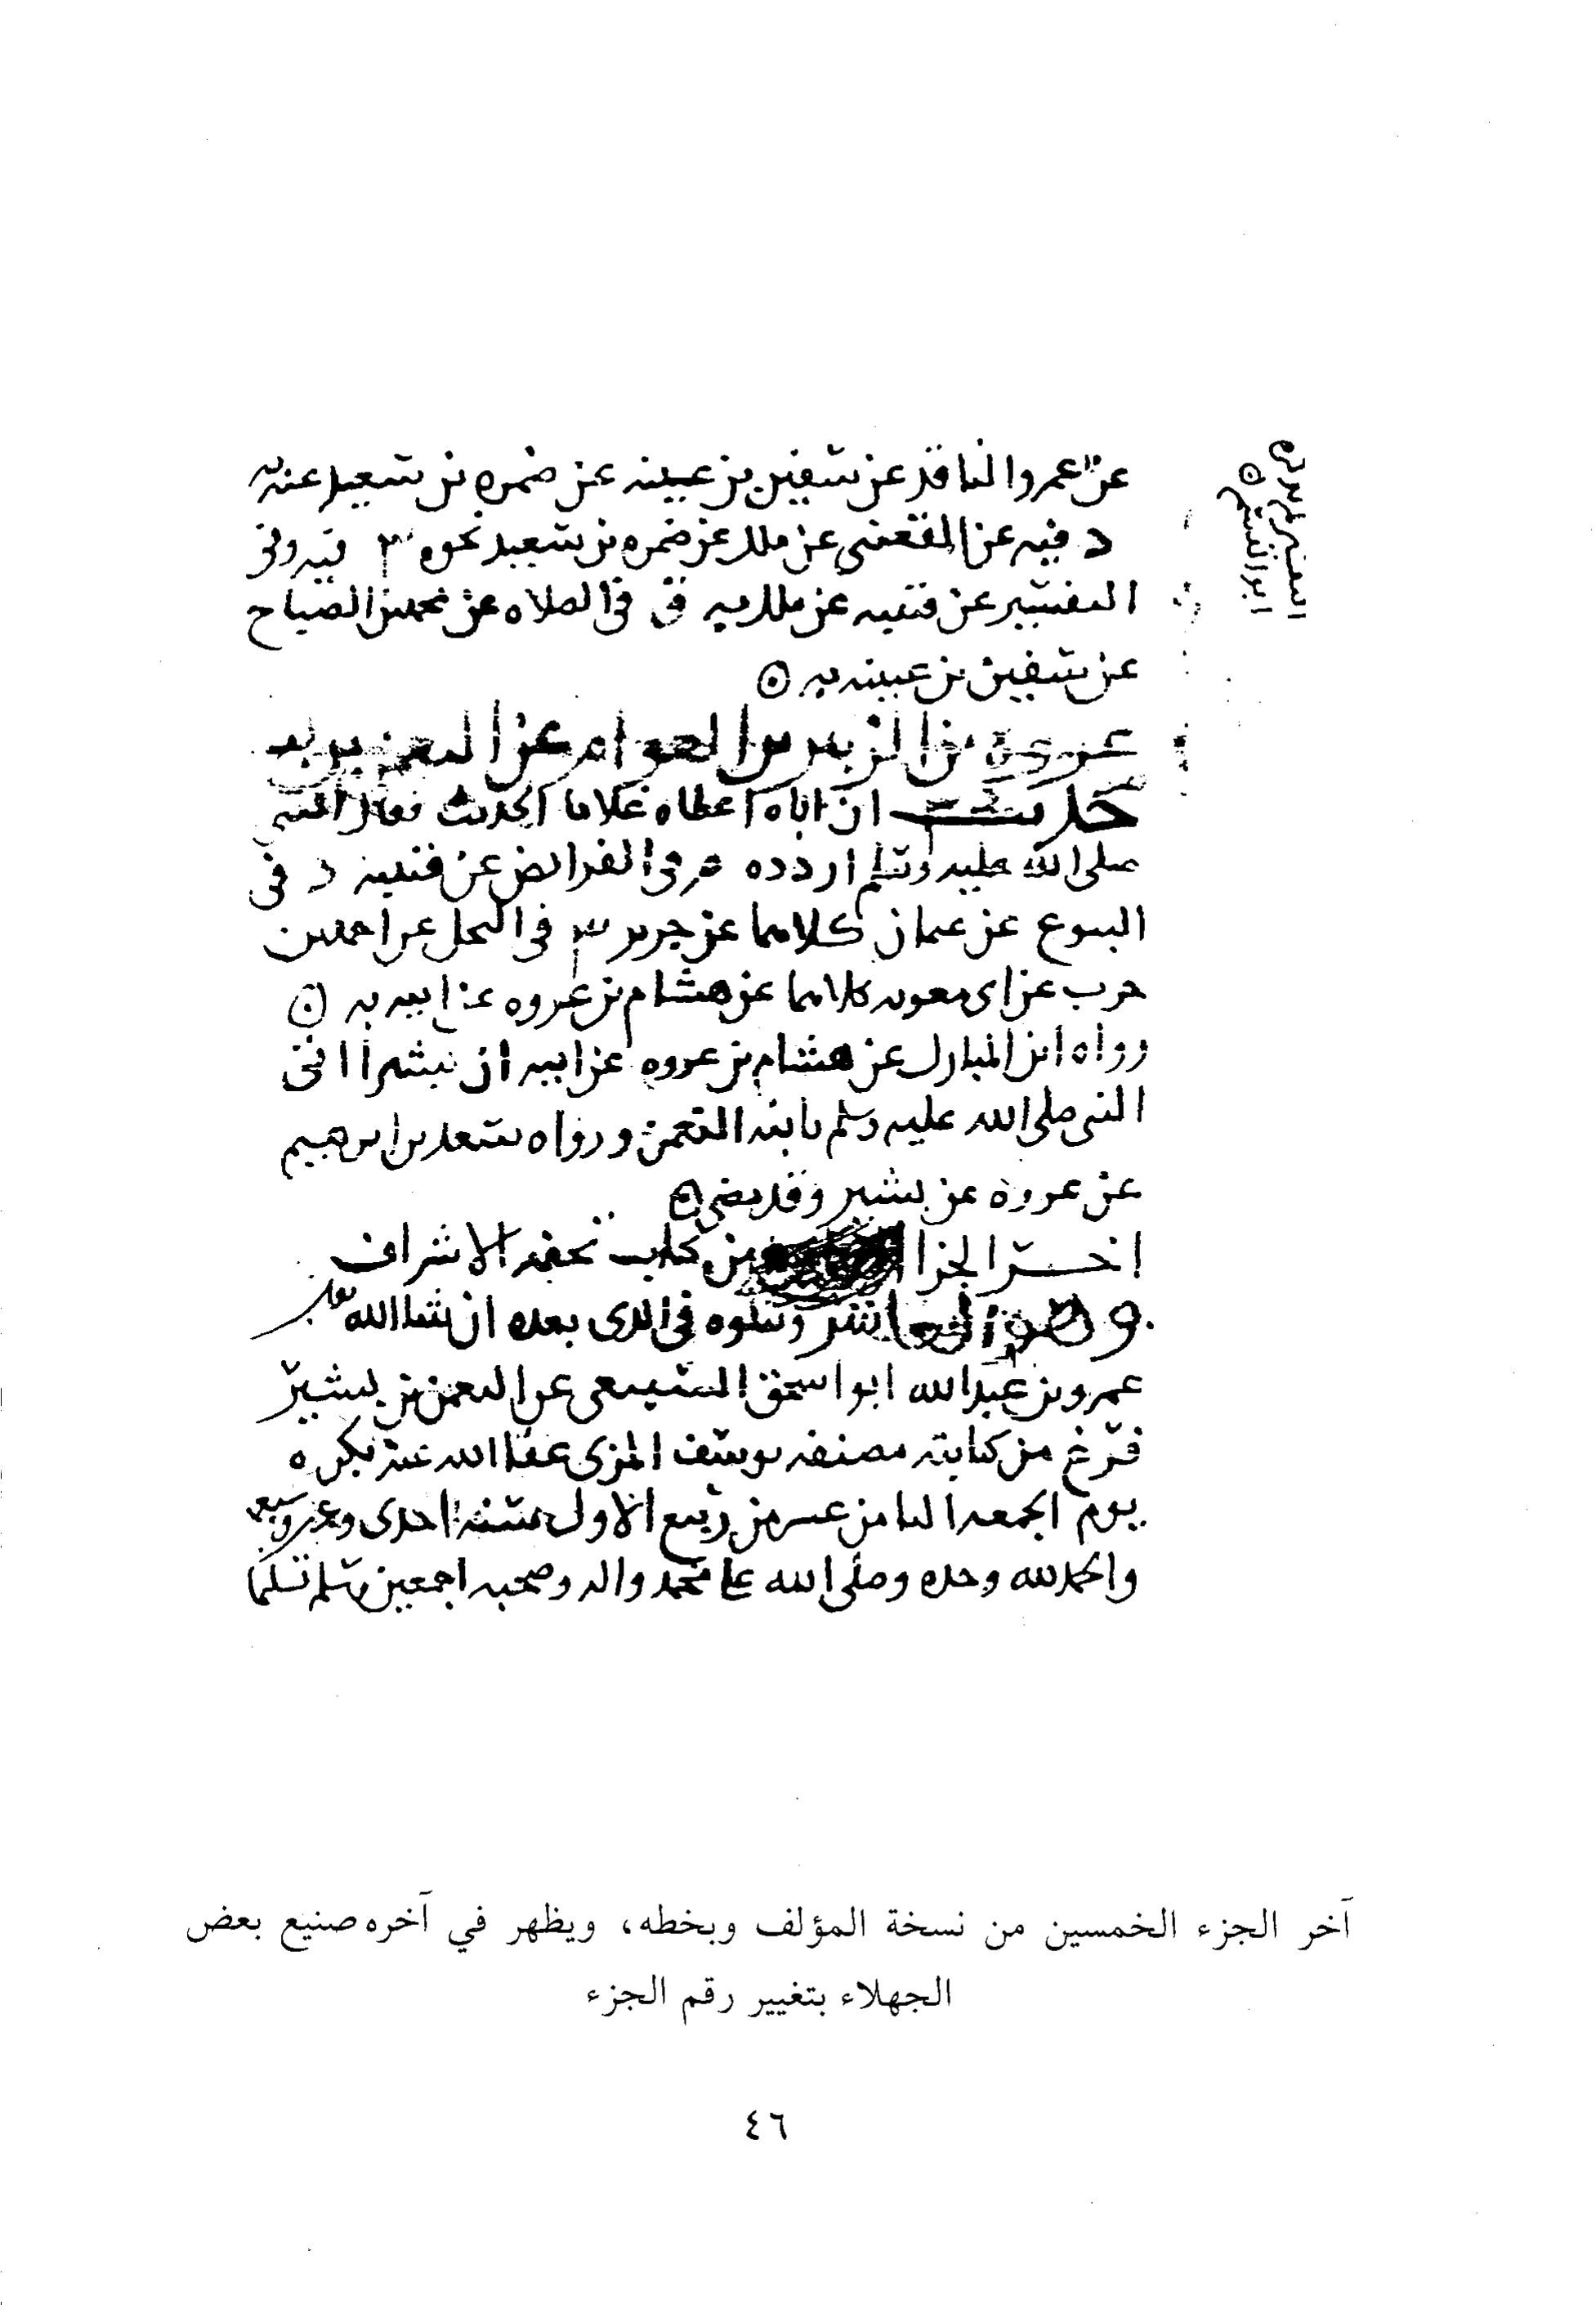 عن عمرو الناقد عن سفين بن عيينه عن ضمره بن سعيد عنه به
د فيه عن القعنبي عن ملك عن ضمره بن سعيد نحوه س فيه وفي
التفسير عن قتيبه عن ملك به ق في الصلاه عن محمد بن الصباح
عن سفين بن عيينه به
عروة بن الزبير بن العوام عن النعمن بن بشير
حديث ان اباه اعطاه غلاما الحديث فقال النبي
صلى الله عليه وسلم اردده م في الفرائض عن قتيبه د في
البيوع عن عثمان كلاهما عن جرير س في النحل عن احمد بن
حرب عن ابي معويه كلاهما عن هشام بن عروه عن ابيه به
رواه ابن المبارك عن هشام بن عروه عن ابيه ان بشيرا اتى
النبي صلى الله عليه وسلم بابنه النعمن ورواه سعد بن ابرهيم
عن عروه عن بشير وقد مضى
اخر الجزا من كتاب تحفه الاشراف
ونتلوه في الذي بعده ان شا الله تعالى
عمرو بن عبد الله ابو اسحق السبيعي عن النعمن بن بشير
فرغ من كتابته مصنفه يوسف المزي عفا الله عنه بكره
يوم الجمعه الثامن عشر من ربيع الاول سنه احدى وعشر وسبع
والحمد لله وحده وصلى الله على محمد واله وصحبه اجمعين وسلم تسليما
آخر الجزء الخمسين من نسخة المؤلف وبخطه، ويظهر في آخره صنيع بعض
الجهلاء بتغيير رقم الجزء
٤٦